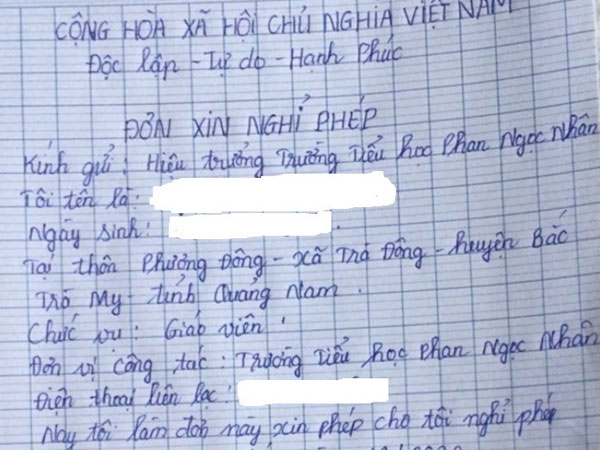 CỘNG HÒA XÃ HỘI CHỦ NGHĨA VIỆT NAM
Độc lập - Tự do - Hạnh Phúc
ĐƠN XIN NGHỈ PHÉP
Kính gửi : Hiệu trưởng Trường Tiểu học Phan Ngọc Nhân
Tôi tên là :
Ngày sinh :
Tại thôn Phương Đông - xã Trà Đông - huyện Bắc
Trà My - tỉnh Quảng Nam .
Chức vụ : Giáo viên
Đơn vị công tác : Trường Tiểu học Phan Ngọc Nhân
Điện thoại liên lạc :
Nay tôi làm đơn này xin phép cho tôi nghỉ phép